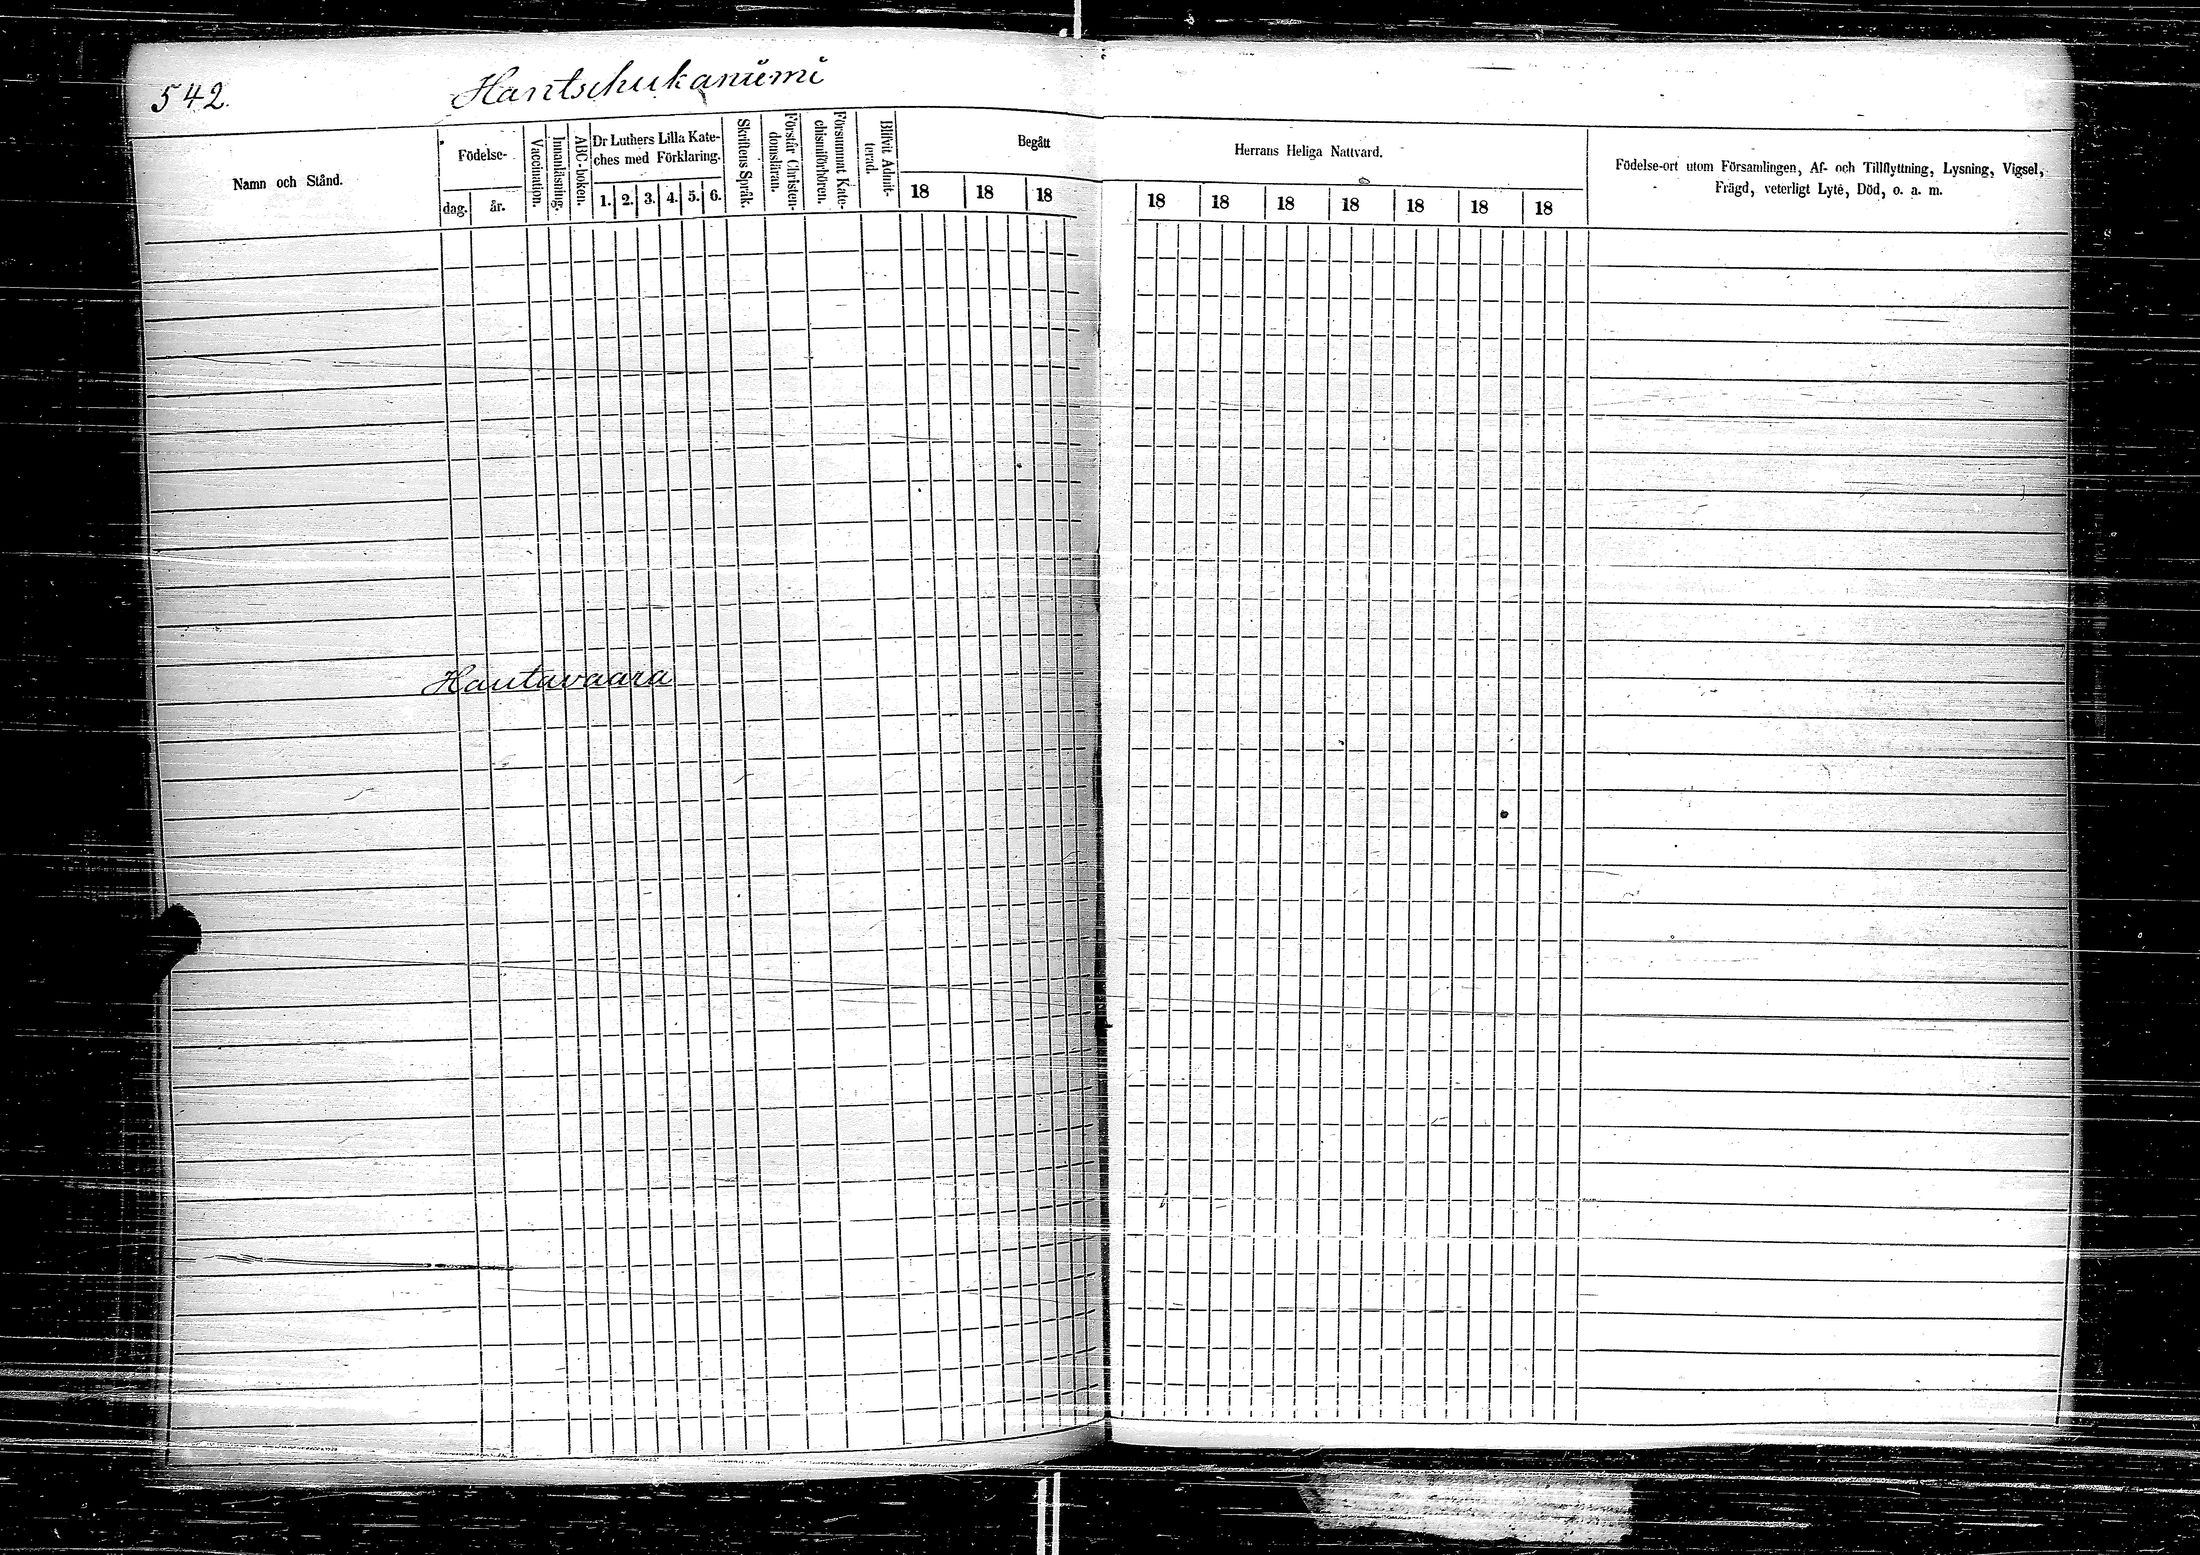 542.
Hantschukanümi
Namn och Stånd.
Födelse-
dag.
år.
Vaccination.
Innanläsning.
ABC-boken.
Dr Luthers Lilla Kate-
ches med Förklaring.
1. 2. 3. 4. 5. 6.
Skriftens Språk.
Förstår Christen-
domsläran.
Försummat Kate-
chismiförhören.
Blifvit Admit-
terad.
Begått
18 18 18
Herrans Heliga Nattvard.
18 18 18 18 18 18 18
Födelse-ort utom Församlingen, Af- och Tillflyttning, Lysning, Vigsel,
Frägd, veterligt Lyte, Död, o. a. m.
Hautavaara